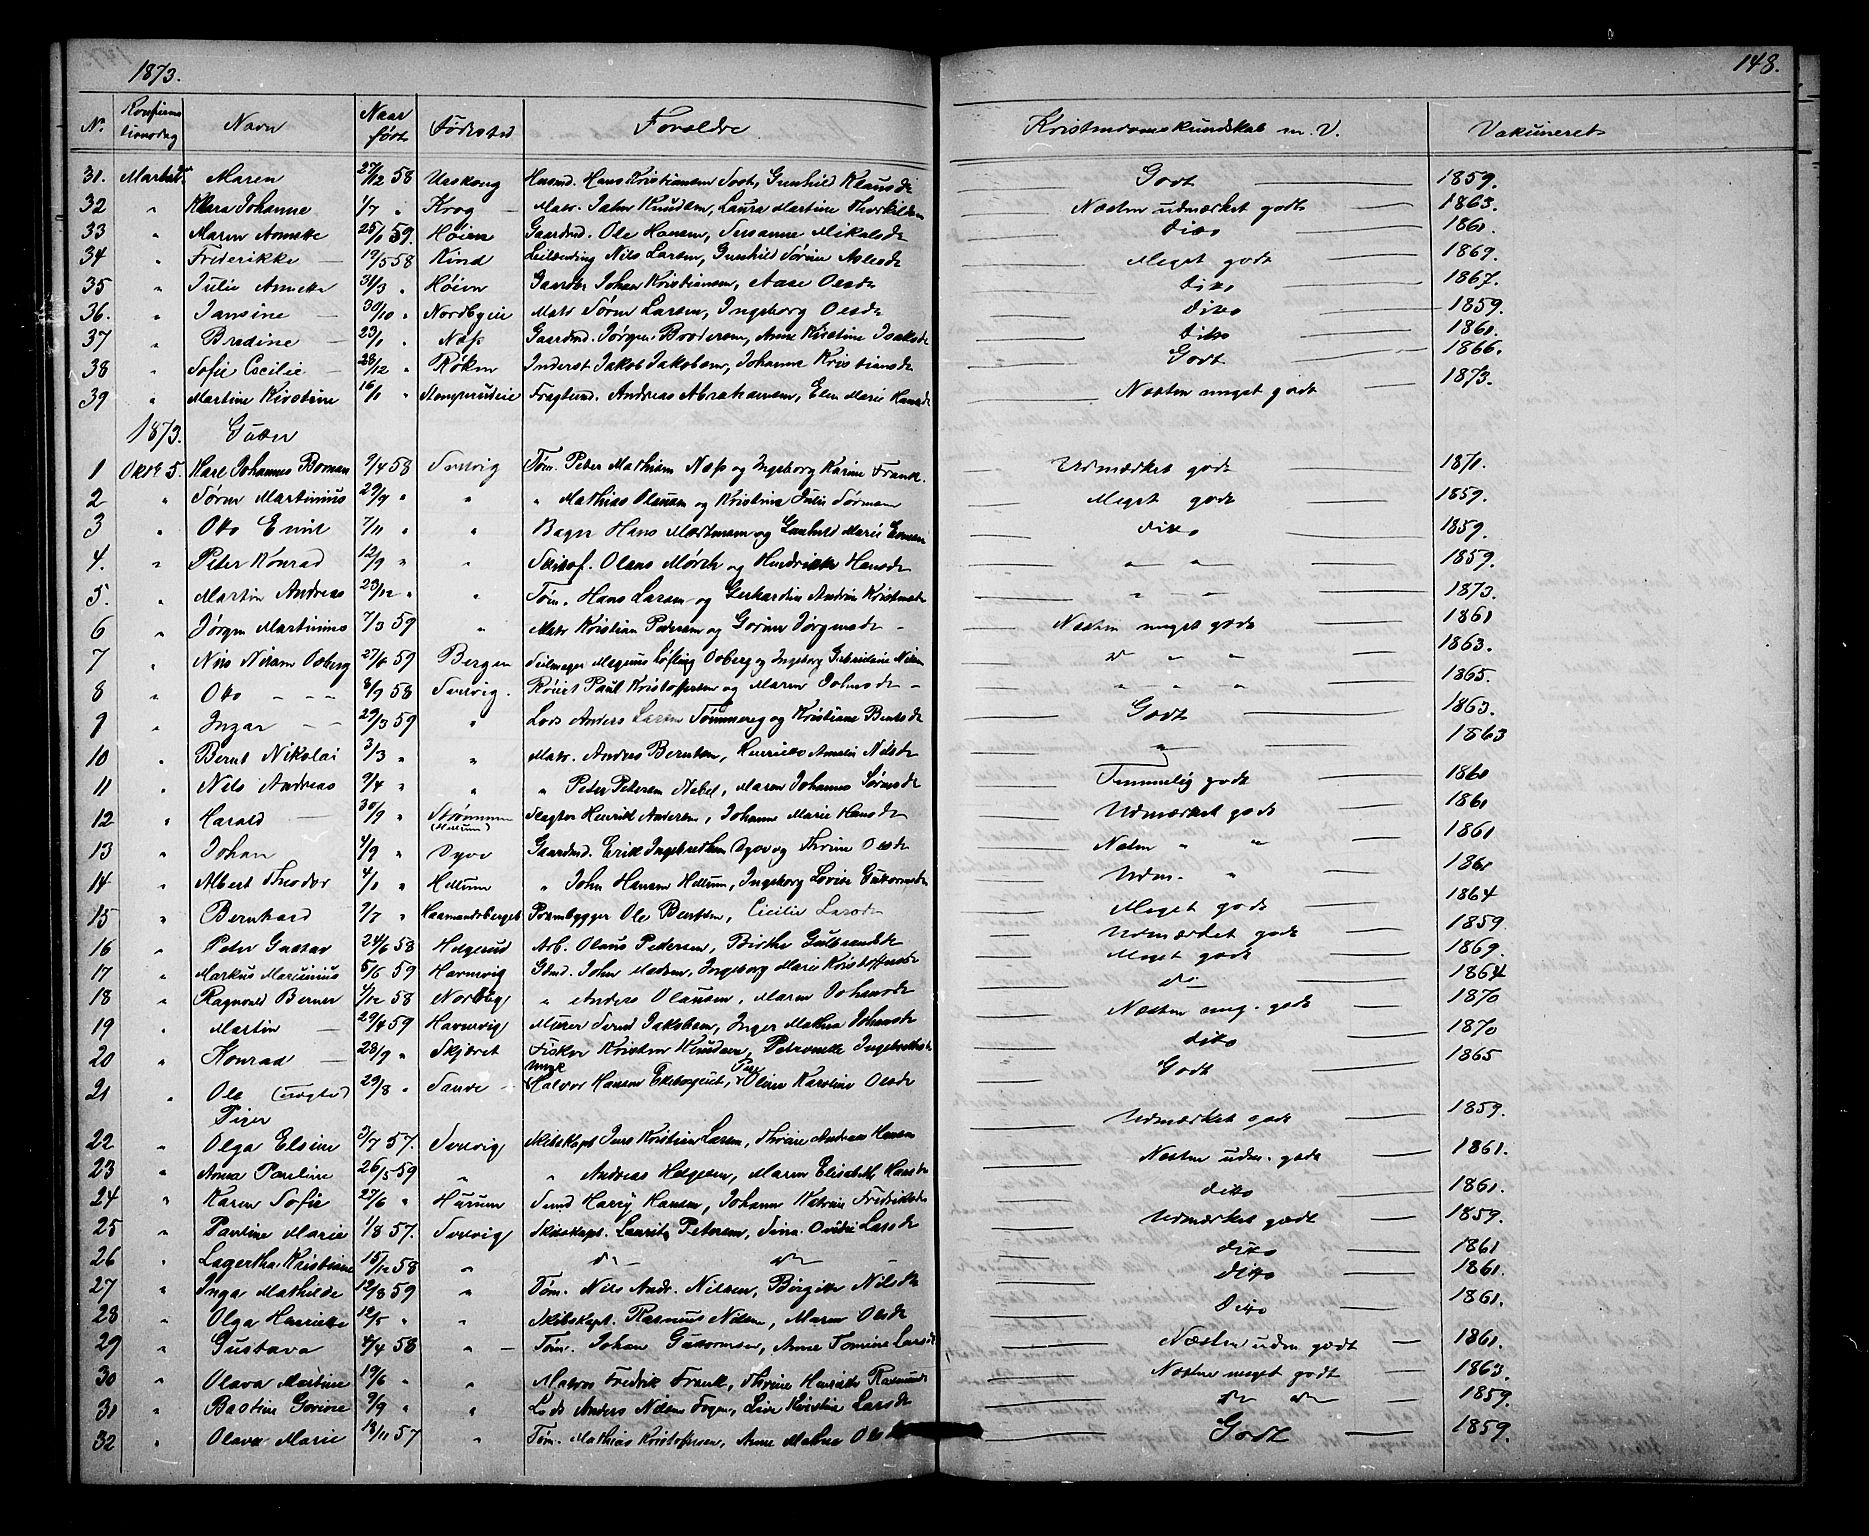 1873.
148.
No. Konfirmationsdag Navn Naar født Fødested Forældre Kristendomskundskab m. V. Vakcineret
31. Maren 27/12 58 Urskoug Husmd. Hans Kristiansen Gunhild Klausdr Godt 1859.
32 " Klara Johanne 1/7 " Krog Matr. Johan Knudsen, Laura Martine Thorkildsen Næsten udmærket godt 1863.
33 " Maren Annette 25/1 59. Høien Gaardmd. Ole Hansen, Susanne Mikalsdr dito 1861.
34 " Frederikke 19/5 58 Rind Leilænding Nils Larsen, Gunhild Sørine Meget godt 1869.
35 " Julie Annette 31/3 " Høien Johan Kristiansen, Aase Olsdr dito 1867.
36. " Jansine 30/10 " Nordbyeie Matr Søren Larsen, Ingeborg Olsdr dito 1859.
37 " Bredine 23/1 " Næss Gaardmd. Jørgen Brodersen, Anne Kirstine Isaksdr dito 1861.
38 " Sofie Cecilie 28/12 " Røken Inderst Jakob Jakobsen, Johanne Kristiansdr Godt 1866.
39 " Martine Kirstine 16/1 " Andreas Abrahamsen, Elen Marie Hansdr Næsten meget godt 1873.
1873. Gutter
1 Oktr 5. Karl Johannes Boman 9/4 58 Svelvig Tøm. Peter Mathisen Næss og Ingeborg Karine Frank. Udmærket godt 1871.
2 " Søren Martinius 29/9 " " " Mathias Olausen og Kristine Julie Sørensen Meget godt 1859.
3 " Otto Emil 7/11 " " Bager Hans Mortensen og Gunhild Marie dito 1859.
4. " Peter Konrad 12/9 " " Skibsf. Olaus Mørch og Hendrikke Hansdr " " 1859.
5. " Martin Andreas 23/12 " " Tøm. Hans Larsen og Gerhardine Andrine " " 1873.
6 " Jørgen Martinius 7/3 59 " Matr Kristian Pedersen og Gorine Jørgensdr Næsten meget godt 1861
7 " Nils Nilsen Osberg 27/8 59 Bergen Seilmager Magnus Løfling Osberg og Ingeborg Gabrieline Nilsen " " " 1863.
8 " Otto 8/9 58 Svelvig. Paul Kristoffersen og Maren Johnsdr " " " 1865.
9 " Ingar 29/3 59 " Lods Anders Larsen og Kristiane Berntsdr Godt 1863.
10 " Bernt Nikolai 3/3 " " Matr. Anders Berntsen, Henriette Amalie Nilsdr " 1863
11 " Nils Andreas 9/4 " " " Peter Petersen Aabel, Maren Johanne Sørensdr Temmelig godt 1860
12 " Harald 30/9 " Strømmen (Hellum) Slagter Henrik Andersen, Johanne Marie Hansdr Udmærket godt 1861
13 " Johan 4/9 " Dyve Gaardmd. Erik Ingebrethsen Dyve og Thrine Olsdr Næsten " " 1861
14 " Albert Theodor 4/1 " Hellum " John Hansen Hellum, Ingeborg Lovise Guttormsdr Udm. " 1861
15 " Bernhard 9/7 " Haamandsberget Prambygger Ole Berntsen, Cicilie Larsdr Meget godt 1864
16 " Peter Gustav 24/6 58 Helgerud Arb. Olaus Pedersen, Birthe Gulbrandsdr Udmærket godt 1859.
17 " Markus Marinius 5/6 59 Havnvig Gdmd. John Madsen, Ingeborg Marie Kristoffersdr Meget godt 1869.
18 " Ragnvald Berner 4/12 58 Nordby " Anders Olausen, Maren Johansdr do 1864
19 " Martin 29/4 59 Havnevig Murer Svend Jakobsen, Inger Mathea Johansdr Næsten meg. godt 1870
20 " Konrad 28/9 " Skjæret Fisker Kristen Knudsen, Petronelle Ingebretsdr dito 1870
21 " Ole 29/8 " Sande Halvor Hansen Oline Karoline Olsdr Godt 1865
Piger
22 " Olga Elsine 3/7 57. Svelvig Skibskapt. Jens Kristian Larsen, Thrine Andrea Hansen Udmærket godt 1859.
23 " Anna Pauline 26/5 59 " " Andreas Helgesen, Maren Elisabeth Hansdr Næsten udm. godt 1861.
24 " Karen Sofie 27/6 " Hurum Svend Harry Hansen, Johanne Katrine Fredriksdr dito 1861.
25 " Pauline Marie 1/8 57. Svelvig Skibskapt. Laurits Petersen, Sina Ovidie Larsdr Udmærket godt 1859.
26 " Lagertha Kristiane 15/12 58 " do do dito 1861
27 " Inga Mathilde 19/8 59 " Tøm. Nils Andr. Nilsen, Børgitte Nilsdr dito 1861.
28 " Olga Henriette 12/5 " " Skibskapt. Rasmus Nilsen, Maren Olsdr dito 1861.
29 " Gustava 4/4 58 " Tøm. Johan Guttormsen, Anne Tomine Larsdr Næsten udm. godt 1861.
30 " Olava Martine 19/6 " " Matros Fredrik Frank, Thrine Henriette Rasmusdr Næsten meget godt 1863.
31 " Bastine Gorine 9/9 " " Lods Anders Nilsen Live Kirstine Larsdr do do 1859.
32 " Olava Marie 13/11 57 " Tøm. Mathias Kristoffersen, Anne Mathea Olsdr Godt 1859.